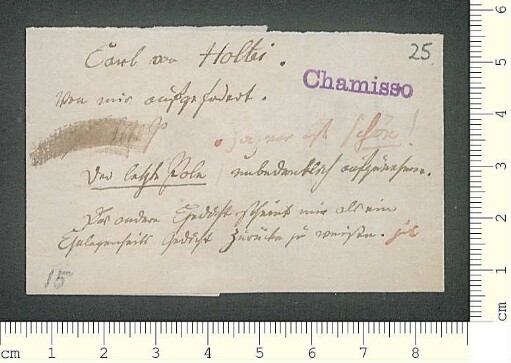 25.
Carl von Holtei.
Chamisso
von mir aufgefordert.
ja, er ist schön!
Der letzte Pole / unbedenklich aufzunehmen.
Das andere Gedicht scheint mir als ein
Gelegenheits Gedicht zurück zu weisen. ja
15
cm 1 2 3 4 5 6 7 8
cm 1 2 3 4 5 6